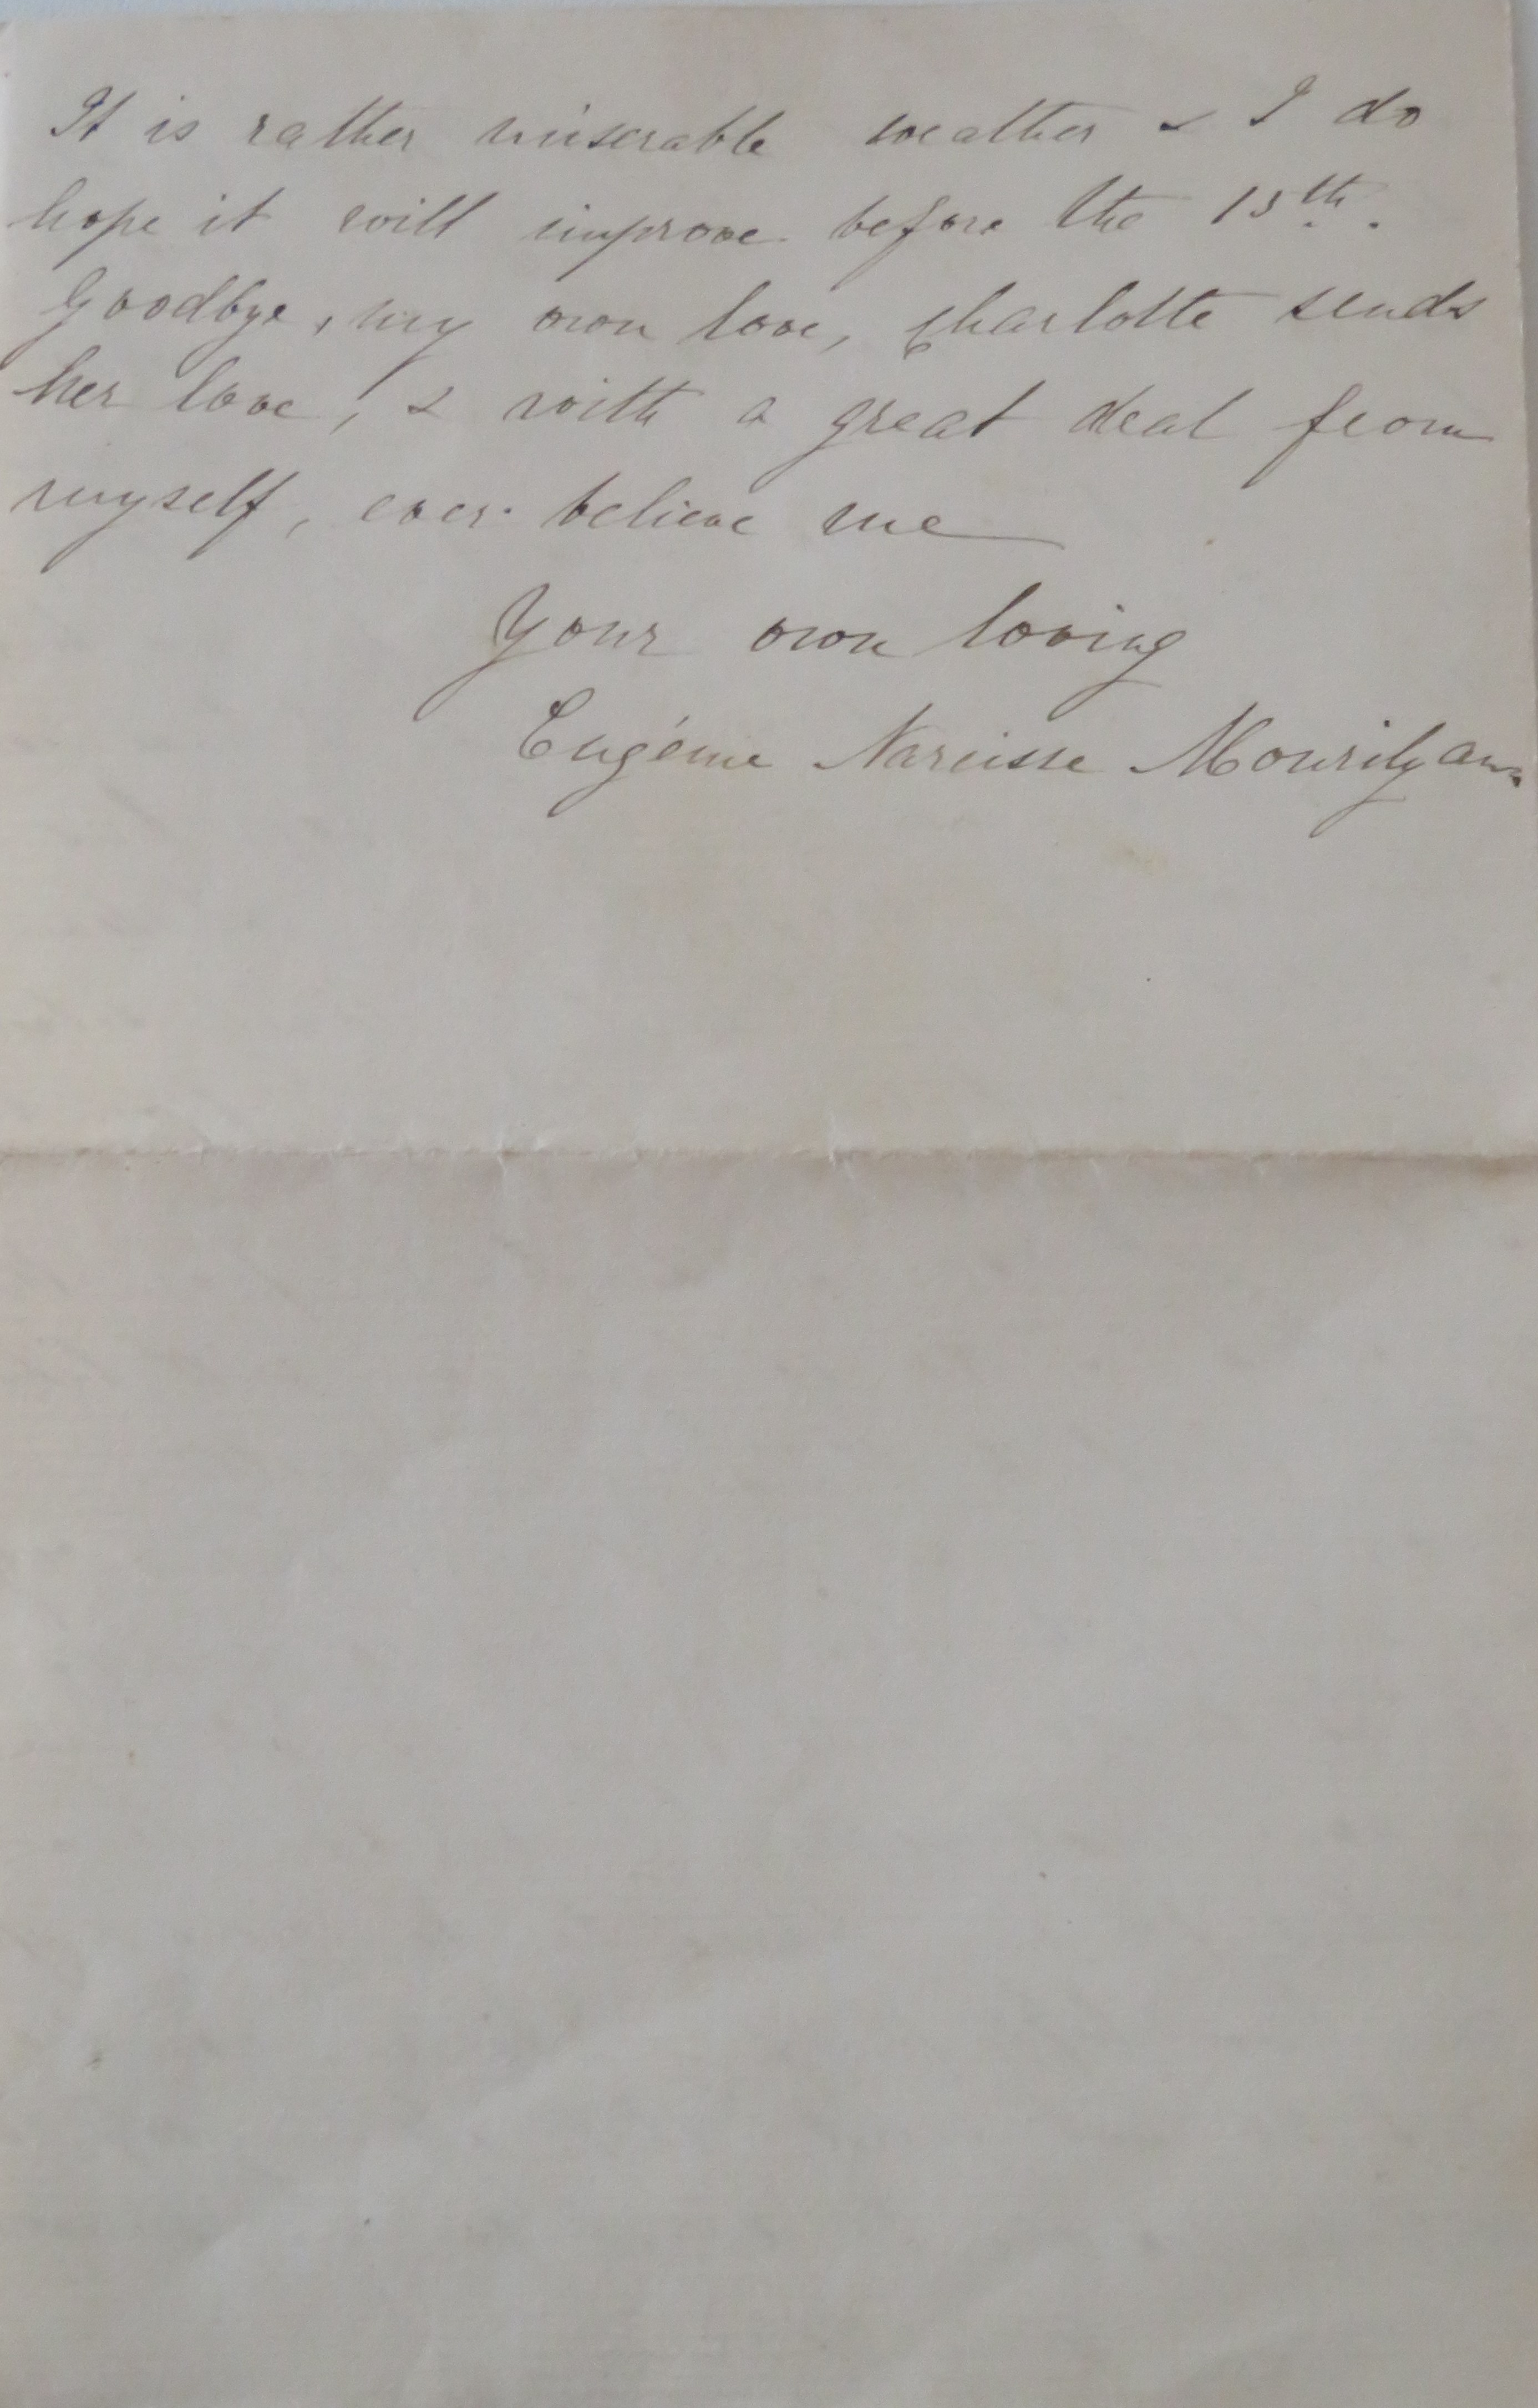 It is rather miserable weather & I do
hope it will improve before the 15th.
Goodbye, my own love, Charlotte sends
her love, & with a great deal from
myself, ever believe me
Your own loving
Eugénie Narcisse Mourilyan